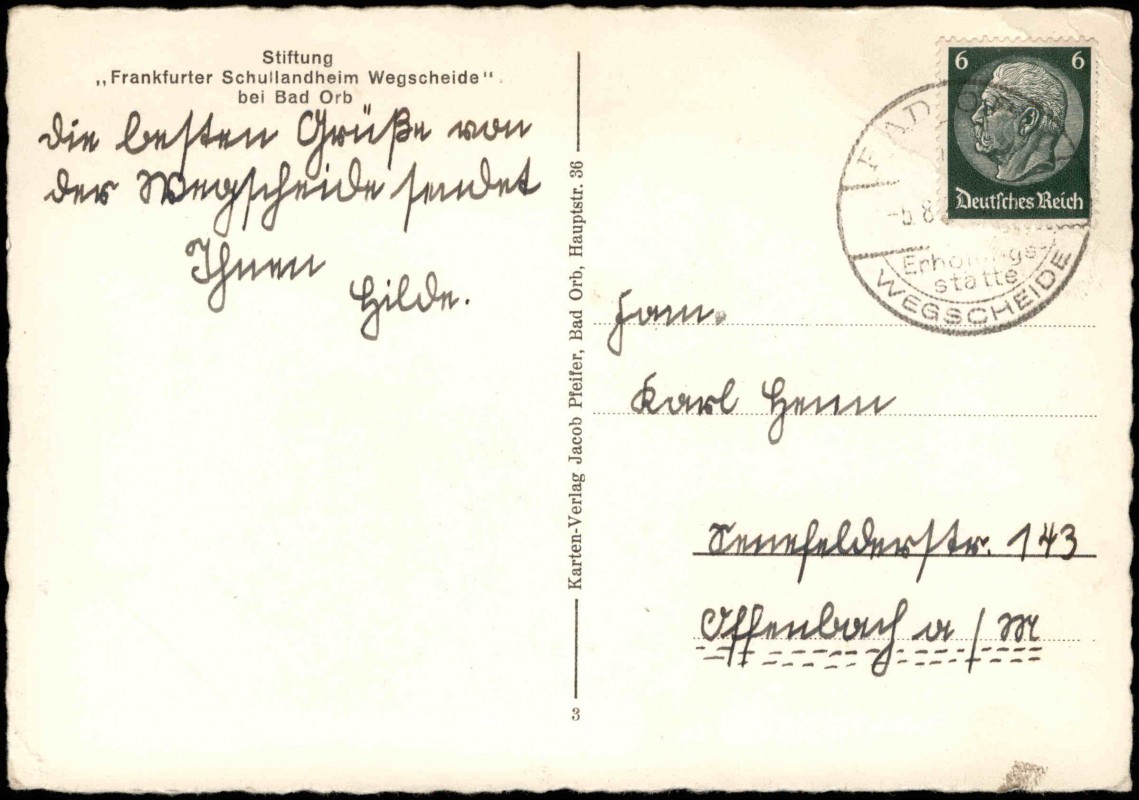 Stiftung
„Frankfurter Schullandheim Wegscheide"
bei Bad Orb
Die besten Grüße von
der Wegscheide sendet
Ihnen
Hilde.
Karten-Verlag Jacob Pfeifer, Bad Orb, Hauptstr. 36
3
6 6
Deutsches Reich
BAD ORB
-5.8.
Erholungs-
stätte
WEGSCHEIDE
Fam.
Karl Henn
Senefelderstr. 143
Offenbach a/M